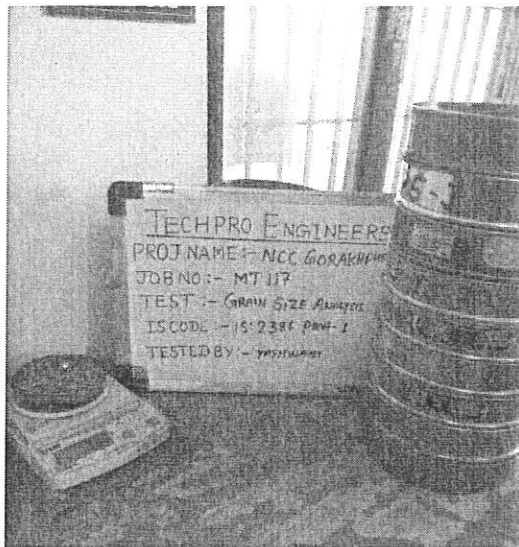 TECHPRO ENGINEERS
PROJ NAME:- NCC GORAKHPUR
JOB NO:- MT 117
TEST:- GRAIN SIZE ANALYSIS
IS CODE:- IS:2386 PART-I
TESTED BY:- YASHWANT